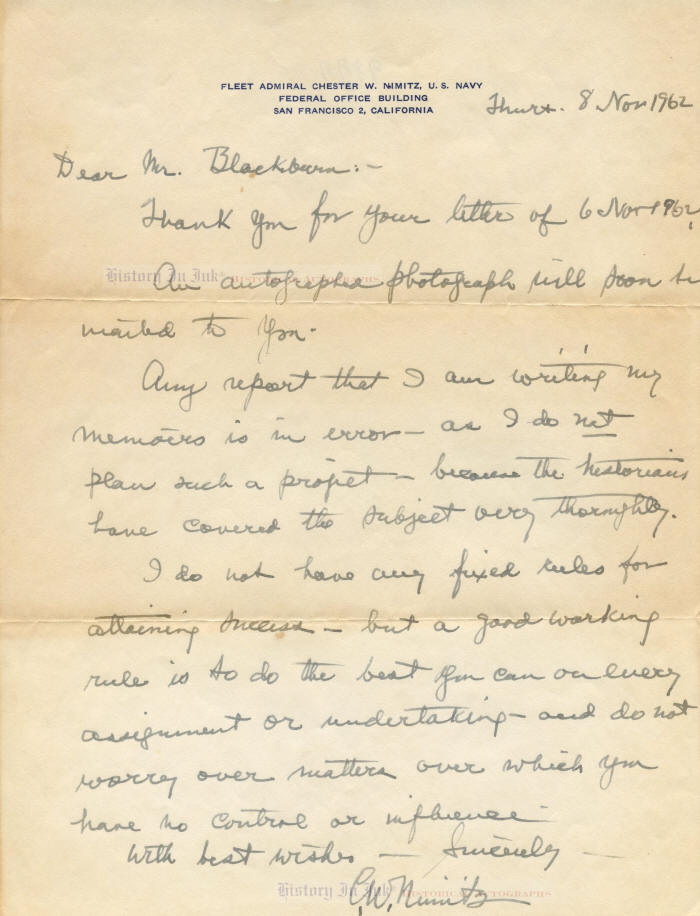 FLEET ADMIRAL CHESTER W. NIMITZ, U. S. NAVY
FEDERAL OFFICE BUILDING
SAN FRANCISCO 2, CALIFORNIA
Thurs. 8 Nov 1962
Dear Mr. Blackburn:-
Thank You for your letter of 6 Nov 1962.
History In Ink HISTORICAL AUTOGRAPHS
An autographed photograph will soon be
mailed to you.
Any report that I am writing my
memoirs is in error - as I do not
plan such a project - because the historians
have covered the subject very thoroughly.
I do not have any fixed rules for
attaining success - but a good working
rule is to do the best you can on every
assignment or undertaking - and do not
worry over matters over which you
have no control or influence -
With best wishes - Sincerely -
History In Ink HISTORICAL AUTOGRAPHS
C.W. Nimitz